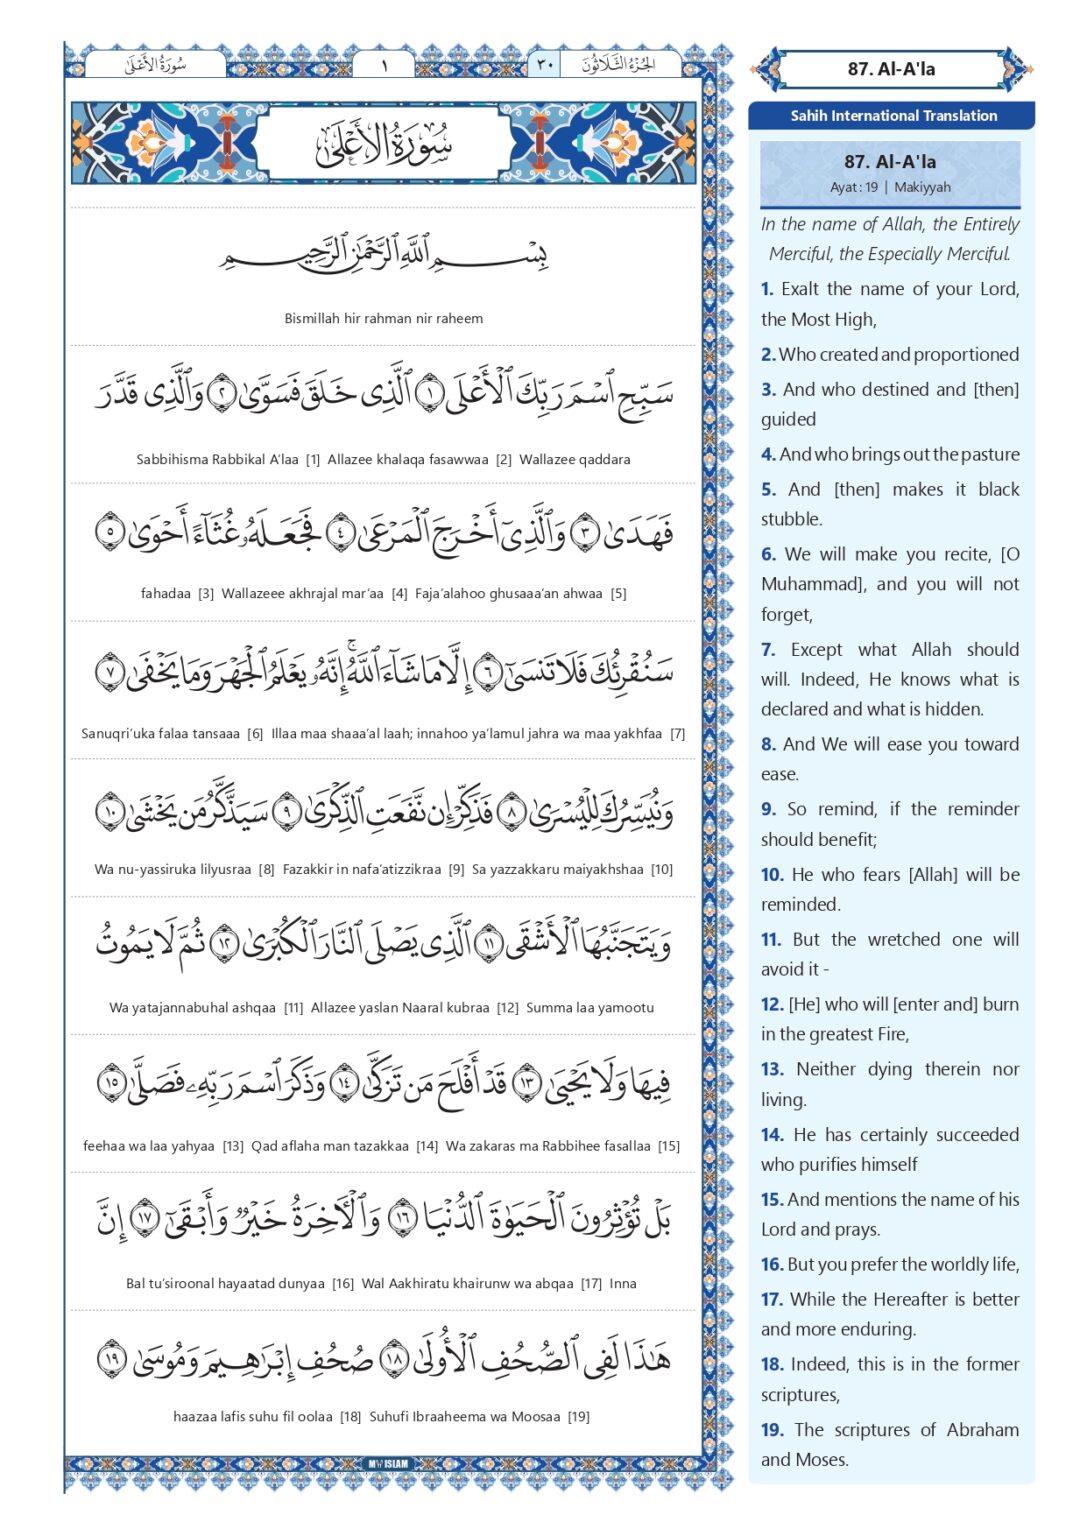 سُورَةُ الأَعْلَىٰ
١
٣٠
الجُزْءُ الثَّلَاثُونَ
سُورَةُ الأَعْلَىٰ
بِسْمِ اللَّهِ الرَّحْمَٰنِ الرَّحِيمِ
Bismillah hir rahman nir raheem
سَبِّحِ ٱسْمَ رَبِّكَ ٱلْأَعْلَى ١ ٱلَّذِى خَلَقَ فَسَوَّىٰ ٢ وَٱلَّذِى قَدَّرَ
Sabbihisma Rabbikal A'laa [1] Allazee khalaqa fasawwaa [2] Wallazee qaddara
فَهَدَىٰ ٣ وَٱلَّذِىٓ أَخْرَجَ ٱلْمَرْعَىٰ ٤ فَجَعَلَهُۥ غُثَآءً أَحْوَىٰ ٥
fahadaa [3] Wallazeee akhrajal mar'aa [4] Faja'alahoo ghusaaa'an ahwaa [5]
سَنُقْرِئُكَ فَلَا تَنسَىٰٓ ٦ إِلَّا مَا شَآءَ ٱللَّهُ ۚ إِنَّهُۥ يَعْلَمُ ٱلْجَهْرَ وَمَا يَخْفَىٰ ٧
Sanuqri'uka falaa tansaaa [6] Illaa maa shaaa'al laah; innahoo ya'lamul jahra wa maa yakhfaa [7]
وَنُيَسِّرُكَ لِلْيُسْرَىٰ ٨ فَذَكِّرْ إِن نَّفَعَتِ ٱلذِّكْرَىٰ ٩ سَيَذَّكَّرُ مَن يَخْشَىٰ ١٠
Wa nu-yassiruka lilyusraa [8] Fazakkir in nafa'atizzikraa [9] Sa yazzakkaru maiyakhshaa [10]
وَيَتَجَنَّبُهَا ٱلْأَشْقَى ١١ ٱلَّذِى يَصْلَى ٱلنَّارَ ٱلْكُبْرَىٰ ١٢ ثُمَّ لَا يَمُوتُ
Wa yatajannabuhal ashqaa [11] Allazee yaslan Naaral kubraa [12] Summa laa yamootu
فِيهَا وَلَا يَحْيَىٰ ١٣ قَدْ أَفْلَحَ مَن تَزَكَّىٰ ١٤ وَذَكَرَ ٱسْمَ رَبِّهِۦ فَصَلَّىٰ ١٥
feehaa wa laa yahyaa [13] Qad aflaha man tazakkaa [14] Wa zakaras ma Rabbihee fasallaa [15]
بَلْ تُؤْثِرُونَ ٱلْحَيَوٰةَ ٱلدُّنْيَا ١٦ وَٱلْءَاخِرَةُ خَيْرٌ وَأَبْقَىٰٓ ١٧ إِنَّ
Bal tu'siroonal hayaatad dunyaa [16] Wal Aakhiratu khairunw wa abqaa [17] Inna
هَٰذَا لَفِى ٱلصُّحُفِ ٱلْأُولَىٰ ١٨ صُحُفِ إِبْرَٰهِيمَ وَمُوسَىٰ ١٩
haazaa lafis suhu fil oolaa [18] Suhufi Ibraaheema wa Moosaa [19]
MY ISLAM
87. Al-A'la
Sahih International Translation
87. Al-A'la
Ayat : 19 | Makiyyah
In the name of Allah, the Entirely
Merciful, the Especially Merciful.
1. Exalt the name of your Lord,
the Most High,
2. Who created and proportioned
3. And who destined and [then]
guided
4. And who brings out the pasture
5. And [then] makes it black
stubble.
6. We will make you recite, [O
Muhammad], and you will not
forget,
7. Except what Allah should
will. Indeed, He knows what is
declared and what is hidden.
8. And We will ease you toward
ease.
9. So remind, if the reminder
should benefit;
10. He who fears [Allah] will be
reminded.
11. But the wretched one will
avoid it -
12. [He] who will [enter and] burn
in the greatest Fire,
13. Neither dying therein nor
living.
14. He has certainly succeeded
who purifies himself
15. And mentions the name of his
Lord and prays.
16. But you prefer the worldly life,
17. While the Hereafter is better
and more enduring.
18. Indeed, this is in the former
scriptures,
19. The scriptures of Abraham
and Moses.